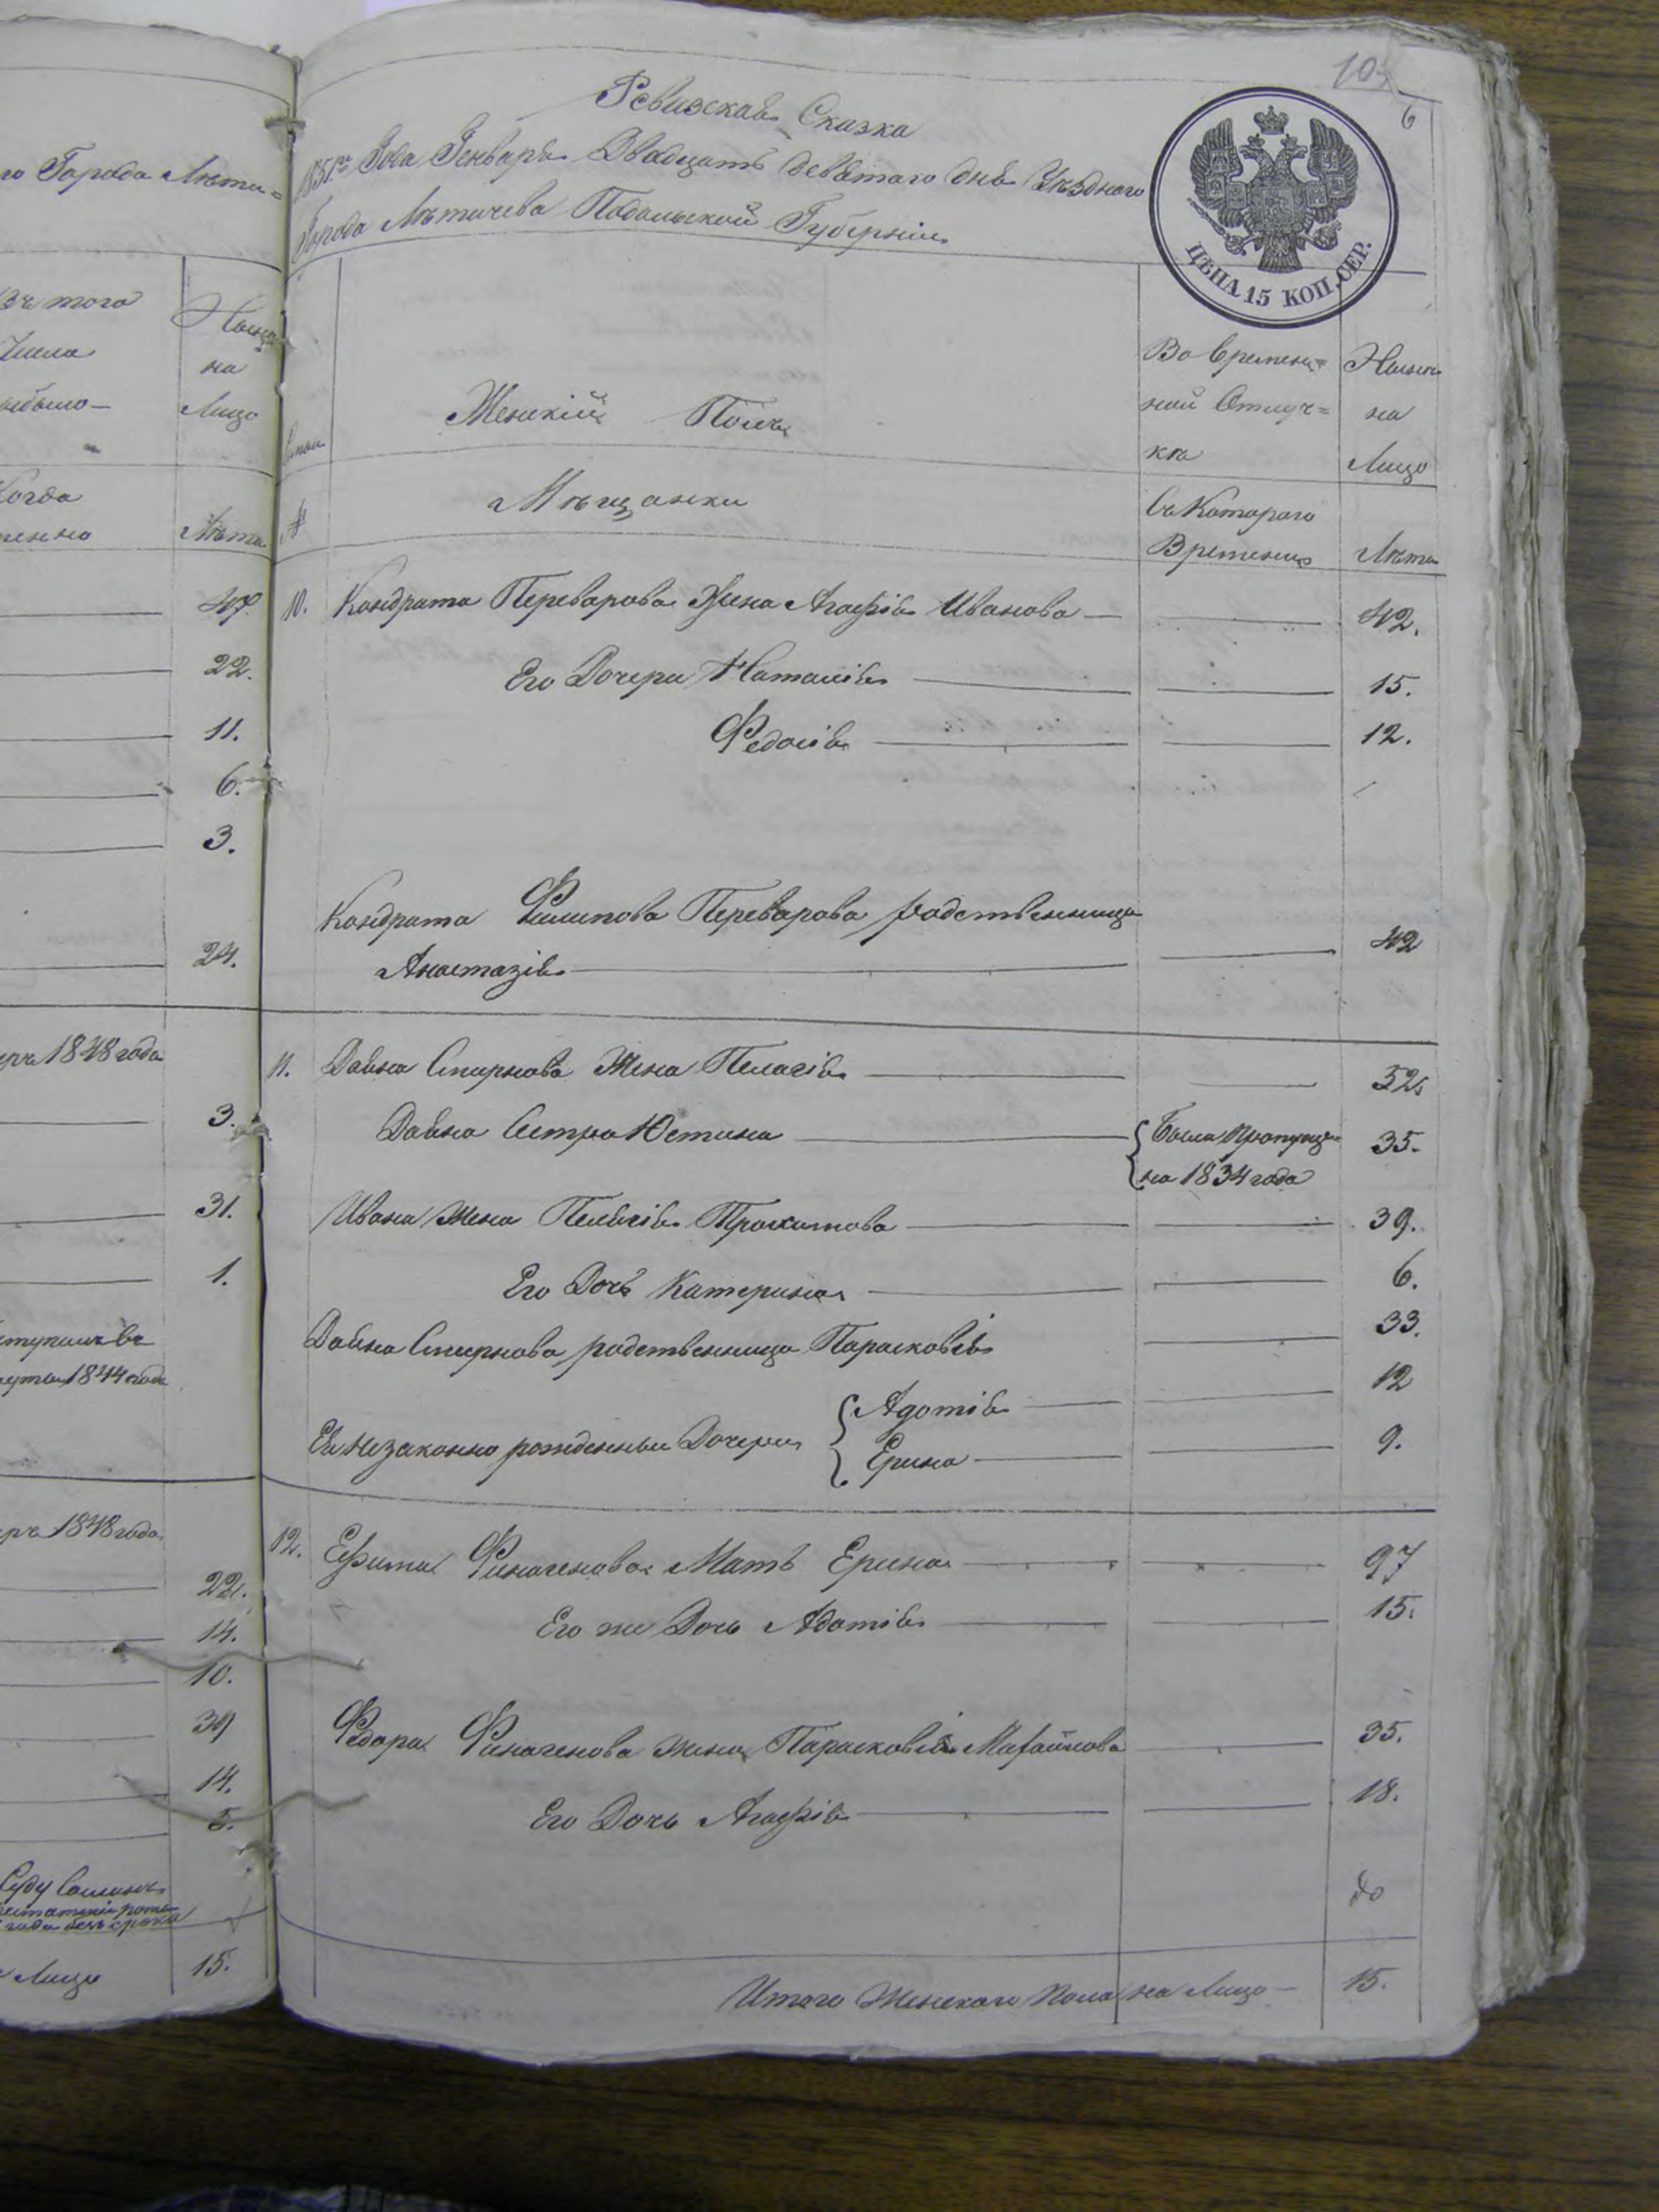 го Города Лѣти=
Изъ того
Числа
выбыло
Когда
Нынѣ
на
Лицо
Лѣта
47.
22.
11.
6.
3.
24.
1848 года
3.
31.
1.
1844 года
1848 года
22.
14.
10.
39
14.
5.
Лицо 15.
10
6
Ревизская Сказка
1851го Года Генваря Двадцать девятаго дня Уѣзднаго
Города Лѣтичева Подольской Губерніи
ЦѢНА 15 КОП. СЕР.
Женскій Полъ
Мѣщанки
Во времен=
ной Отлуч=
кѣ
Съ Котораго
Времени
Нынѣ
на
Лицо
Лѣта
10. Кондрата Переварова Жена Агафія Иванова 42.
Его Дочери Наталія 15.
Федосія 12.
Кондрата Филипова Переварова родственница
Анастазія 42
11. Данна Смирнова Жена Пелагія 52.
Данна Сестра Юстина Была Пропуще 35.
на 1834 года
Ивана Жена Пелагія Прокимова 39.
Его Дочь Катерина 6.
Данна Смирнова родственница Парасковія 33.
Ея незаконно рожденныи Дочери Адотія 12
Ерина 9.
12. Ефима Финогенова Мать Ерина 97
Его же Дочь Адотія 15.
Федора Финогенова жена Парасковія Михайлова 35.
Его Дочь Агафія 18.
Итого Женскаго Пола на Лицо 15.